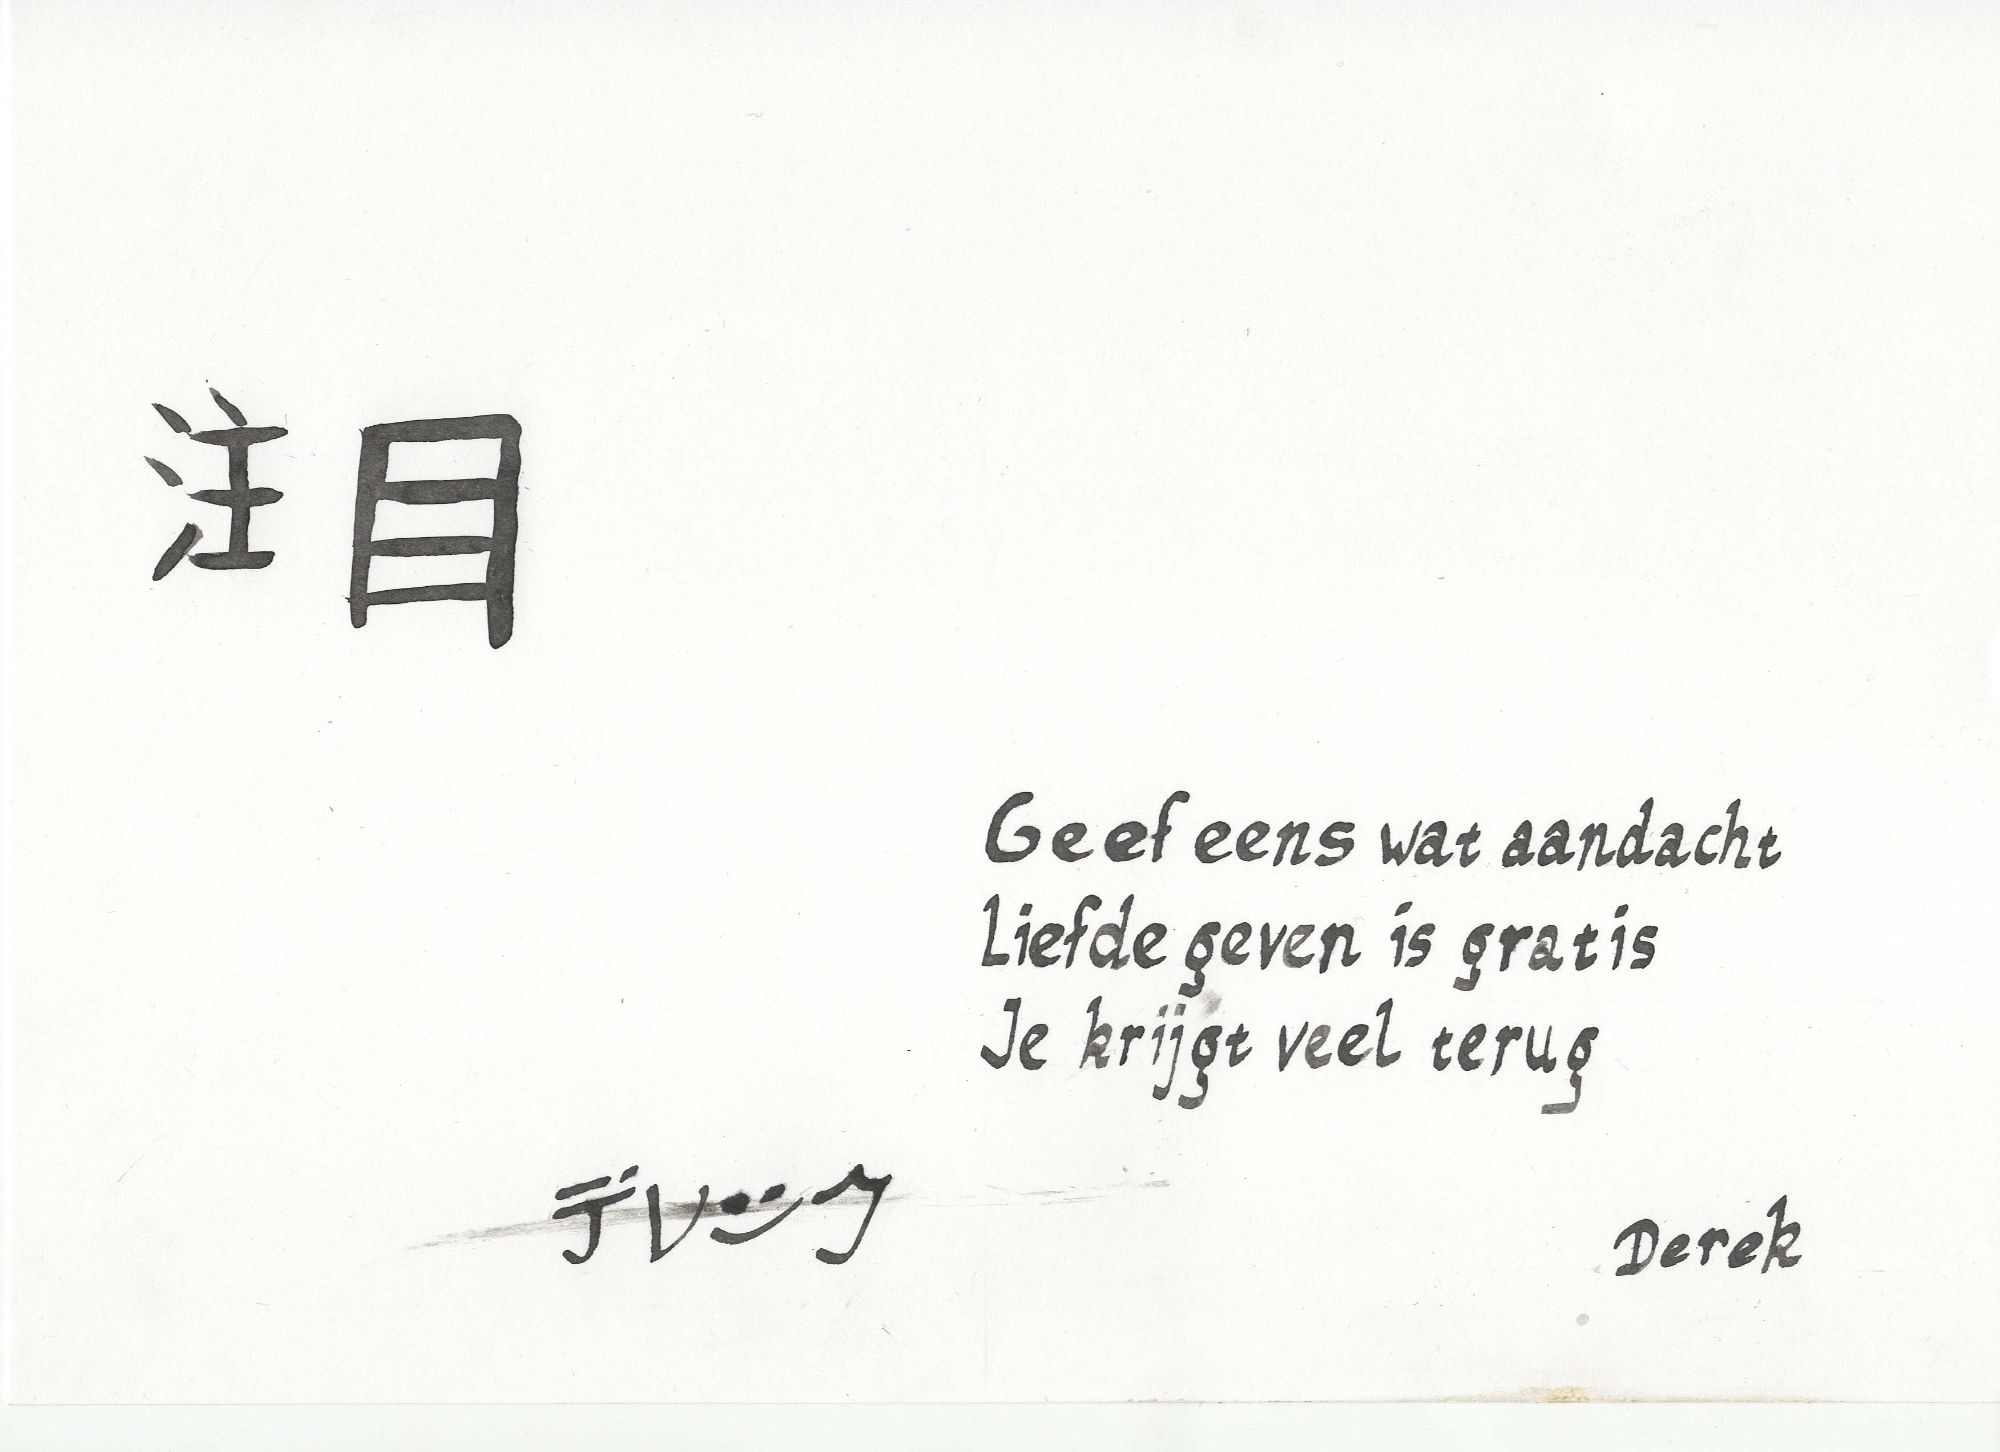 注目
Geef eens wat aandacht
Liefde geven is gratis
Je krijgt veel terug
デレック
Derek